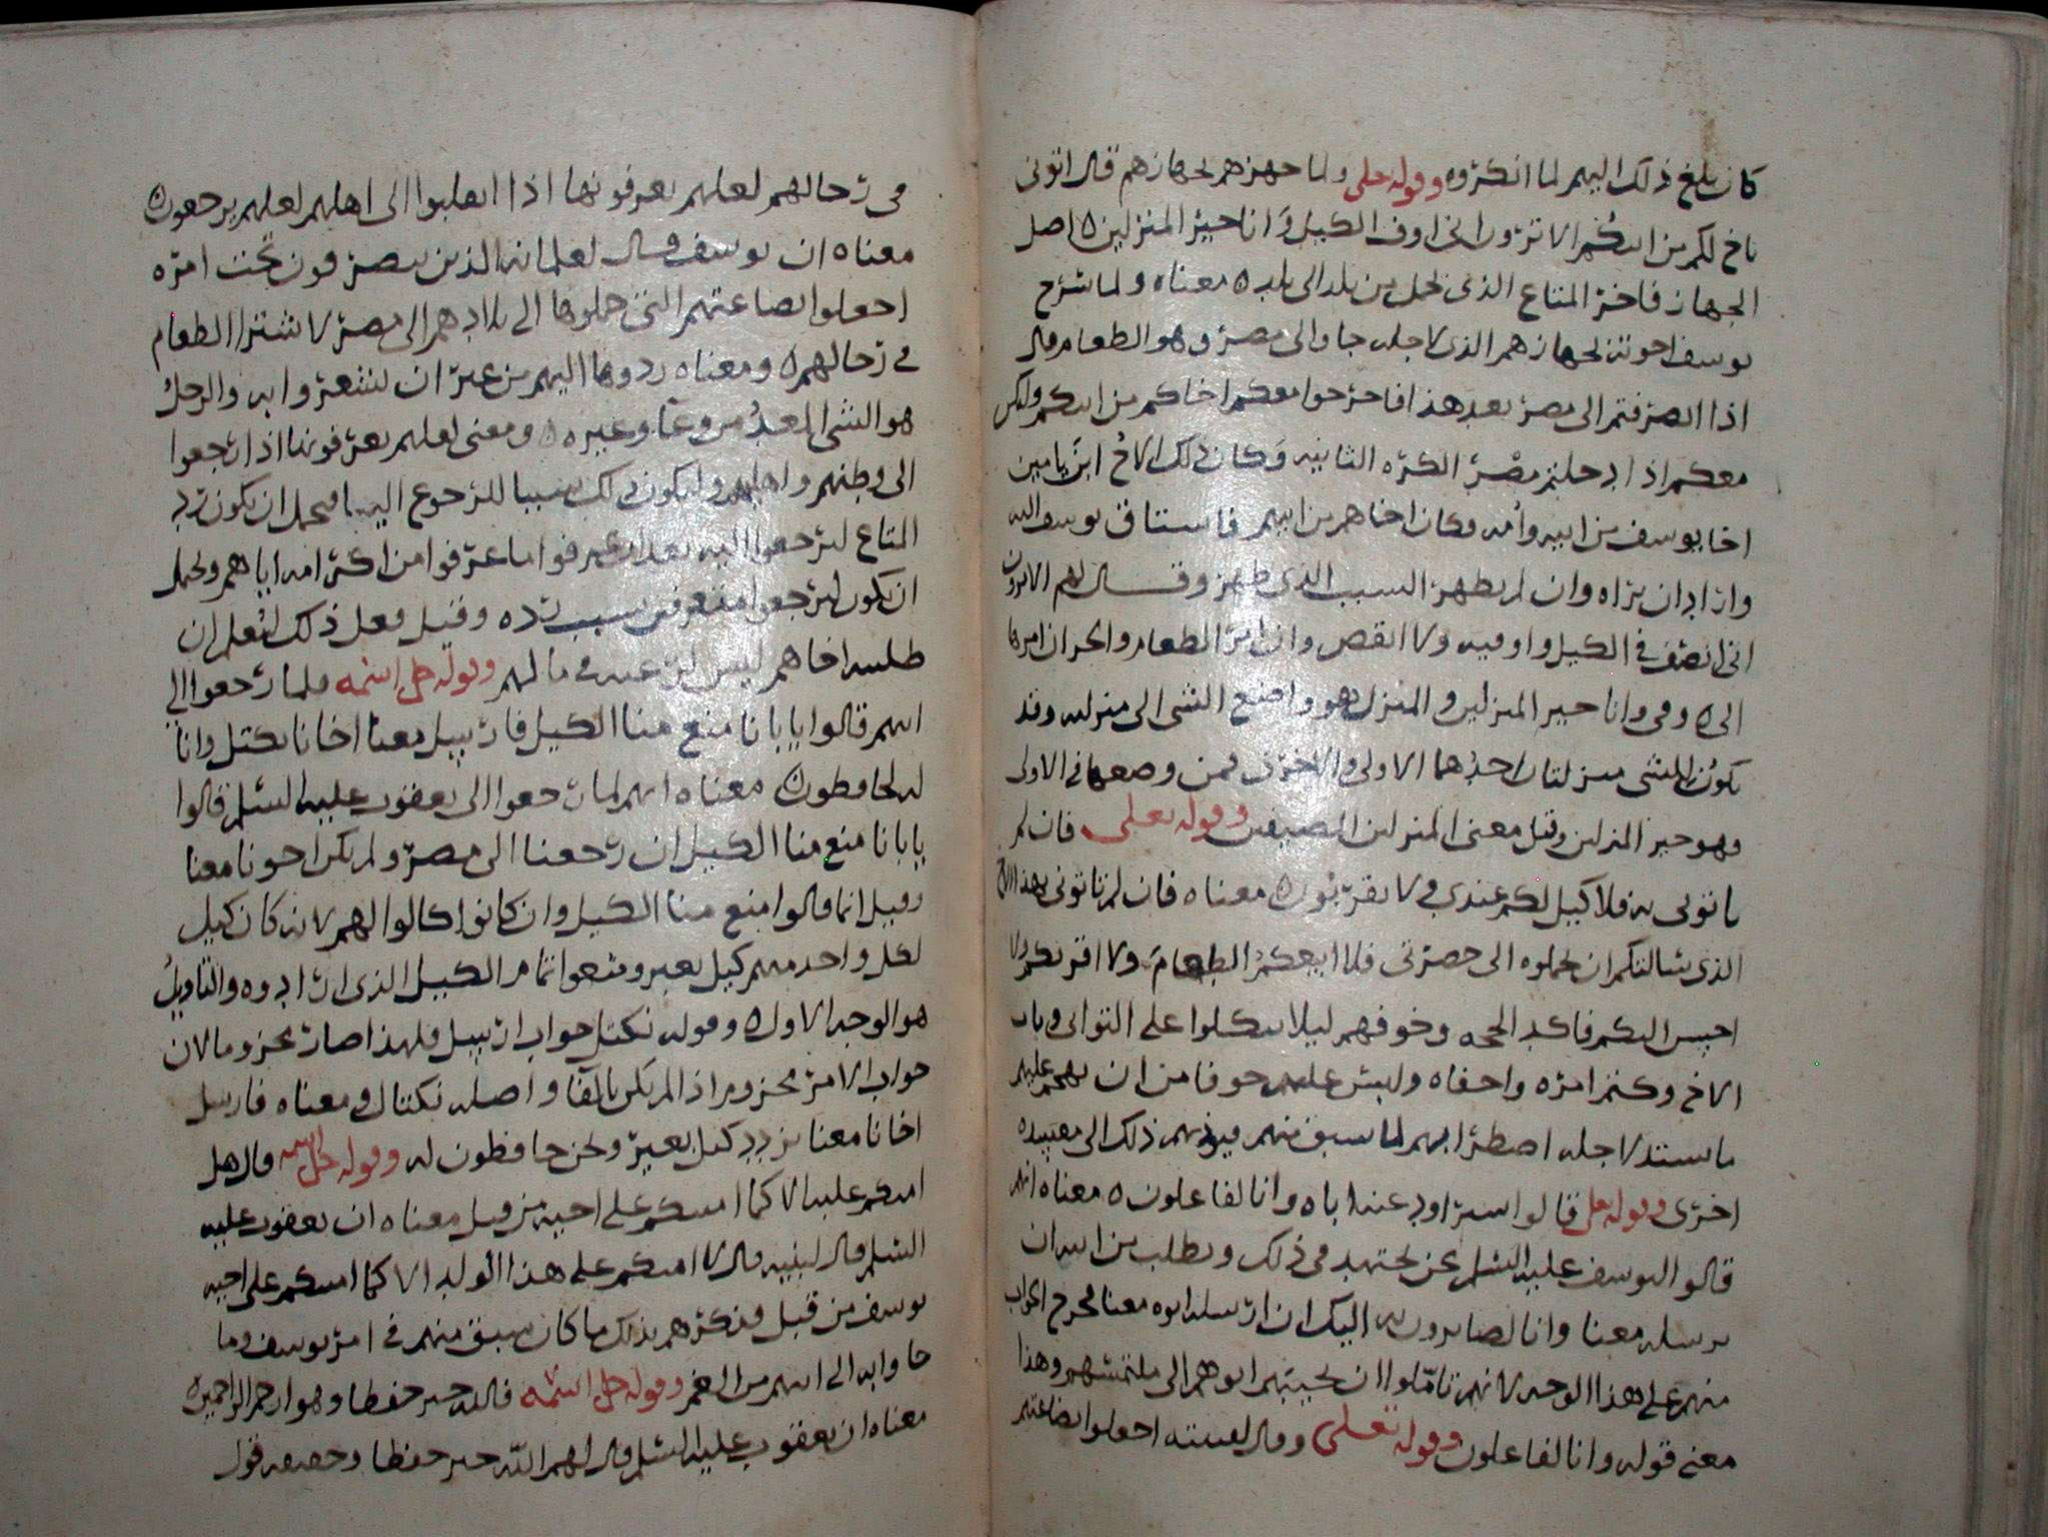 كان بلغ ذلك اليهم لما انكروه وقوله تعلى ولما جهزهم بجهازهم قال اتونى
باخ لكم من ابيكم الا ترون انى اوف الكيل وانا خير المنزلين ه اصل
الجهاز فاخر المتاع الذى يحمل من بلد الى بلد ه معناه ولما شرح
يوسف اخوته بجهازهم الذى لاجله جاوا الى مصر وهو الطعام قال
اذا انصرفتم الى مصر بعد هذا فاخرجوا معكم اخاكم من ابيكم وليكن
معكم اذا دخلتم مصر الكره الثانيه وكان ذلك الاخ ابن يامين
اخا يوسف من ابيه وامه وكان اخاهم من ابيهم فاستاق يوسف اليه
واراد ان يراه وان لم يظهر السبب الذى ظهر وقال لهم الا ترون
انى انصف فى الكيل واوفيه ولا انقص وان امر الطعام والخزان امرها
الى ه وفى وانا خير المنزلين والمنزل هو واضع الشى الى منزلته وقد
يكون للشى منزلتان احدهما الاولى والاخرى فمن وضعها فى الاولى
وهو خير المنزلين وقيل معنى المنزلين المضيفين وقوله تعلى فان لم
تاتونى به فلا كيل لكم عندى ولا تقربون ه معناه فان لم تاتونى بهذا الاخ
الذى سالتكم ان تحملوه الى حضرتى فلا ابيعكم الطعام ولا اقربكم ولا
احسن اليكم فاكد الحجه وخوفهم ليلا يتكلوا على التوانى وباب
الاخ وكتم امره واخفاه ولبس عليهم خوفا من ان يهجم عليهم
ما يشتد لاجله اضطرابهم لما سبق منهم فيوديهم ذلك الى مفسده
اخرى وقوله تعلى قالوا سنراود عنه اباه وانا لفاعلون ه معناه انهم
قالوا ليوسف عليه السلم نحن نجتهد فى ذلك ونطلب من ابيه ان
يرسله معنا وانا لصايرون به اليك ان ارسله ابوه معنا فخرج الجواب
منهم على هذا الوجه لانهم تاملوا ان يجيبهم ابوهم الى ملتمسهم وهذا
معنى قوله وانا لفاعلون وقوله تعلى وقال لفتيته اجعلوا بضاعتهم
فى رحالهم لعلهم يعرفونها اذا انقلبوا الى اهلهم لعلهم يرجعون ه
معناه ان يوسف قال لغلمانه الذين يتصرفون تحت امره
اجعلوا بضاعتهم التى حملوها الى بلادهم الى مصر لاشترا الطعام
فى رحالهم ه ومعناه ردوها اليهم من غير ان يشعروا به والرحل
هو الشى المعد من وعآ وغيره ه ومعنى لعلهم يعرفونها اذا رجعوا
الى وطنهم واهليهم وليكون ذلك سببا للرجوع الينا فيحمل ان يكون رد
المتاع ليرجعوا اليه بعد ان عرفوا ما عرفوا من اكرامه اياهم ويحمل
ان يكون ليرجعوا متعرفين سبب رده وقيل فعل ذلك ليعلم ان
طلبه اخاهم ليس لرغبه فى مالهم وقوله جل اسمه فلما رجعوا الى
ابيهم قالوا يا بانا منع منا الكيل فارسل معنا اخانا نكتل وانا
له لحافظون ه معناه انهم لما رجعوا الى يعقوب عليه السلم قالوا
يا بانا منع منا الكيل ان رجعنا الى مصر ولم يكن اخونا معنا
وقيل انما قالوا منع منا الكيل وان كانوا كالوا لهم لانه كان كيل
لكل واحد منهم كيل بعير ومنعوا تمام الكيل الذى ارادوه والتاويل
هو الوجه الاول ه وقوله نكتل جواب ارسل فلهذا صار مجزوما لان
جواب الامر مجزوم اذا لم يكن بالفا واصله نكتال ومعناه فارسل
اخانا معنا نزدد كيل بعير ونحن حافظون له وقوله جل اسمه قال هل
امنكم عليه الا كما امنتكم على اخيه من قبل معناه ان يعقوب عليه
السلم قال لبنيه قال لا امنكم على هذا الولد الا كما امنتكم على اخيه
يوسف من قبل فذكرهم بذلك ما كان سبق منهم فى امر يوسف وما
جاوا به الى ابيهم من الغم وقوله جل اسمه فالله خير حفظا وهو ارحم الراحمين ه
معناه ان يعقوب عليه السلم قال لهم الله خير حفظا وحفظه قول